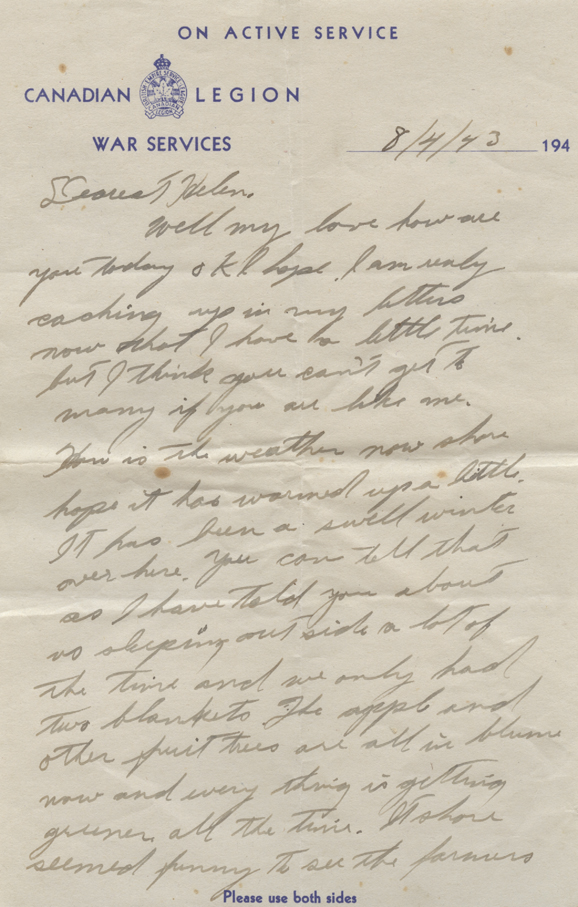 ON ACTIVE SERVICE
CANADIAN LEGION
WAR SERVICES
8/4/43 194
Dearest Helen.
Well my love how are
you today O K I hope. I am realy
caching up in my letters
now that I have a little time.
but I think you can't get to
many if you are like me.
How is the weather now shore
hope it has warmed up a little.
It has been a swell winter
over here. You can tell that
as I have told you about
us sleeping out side a lot of
the time and we only had
two blankets. The appl and
other fruit trees are all in blume
now and every thing is getting
greener all the time. It shore
seemed funny to see the farmers
Please use both sides